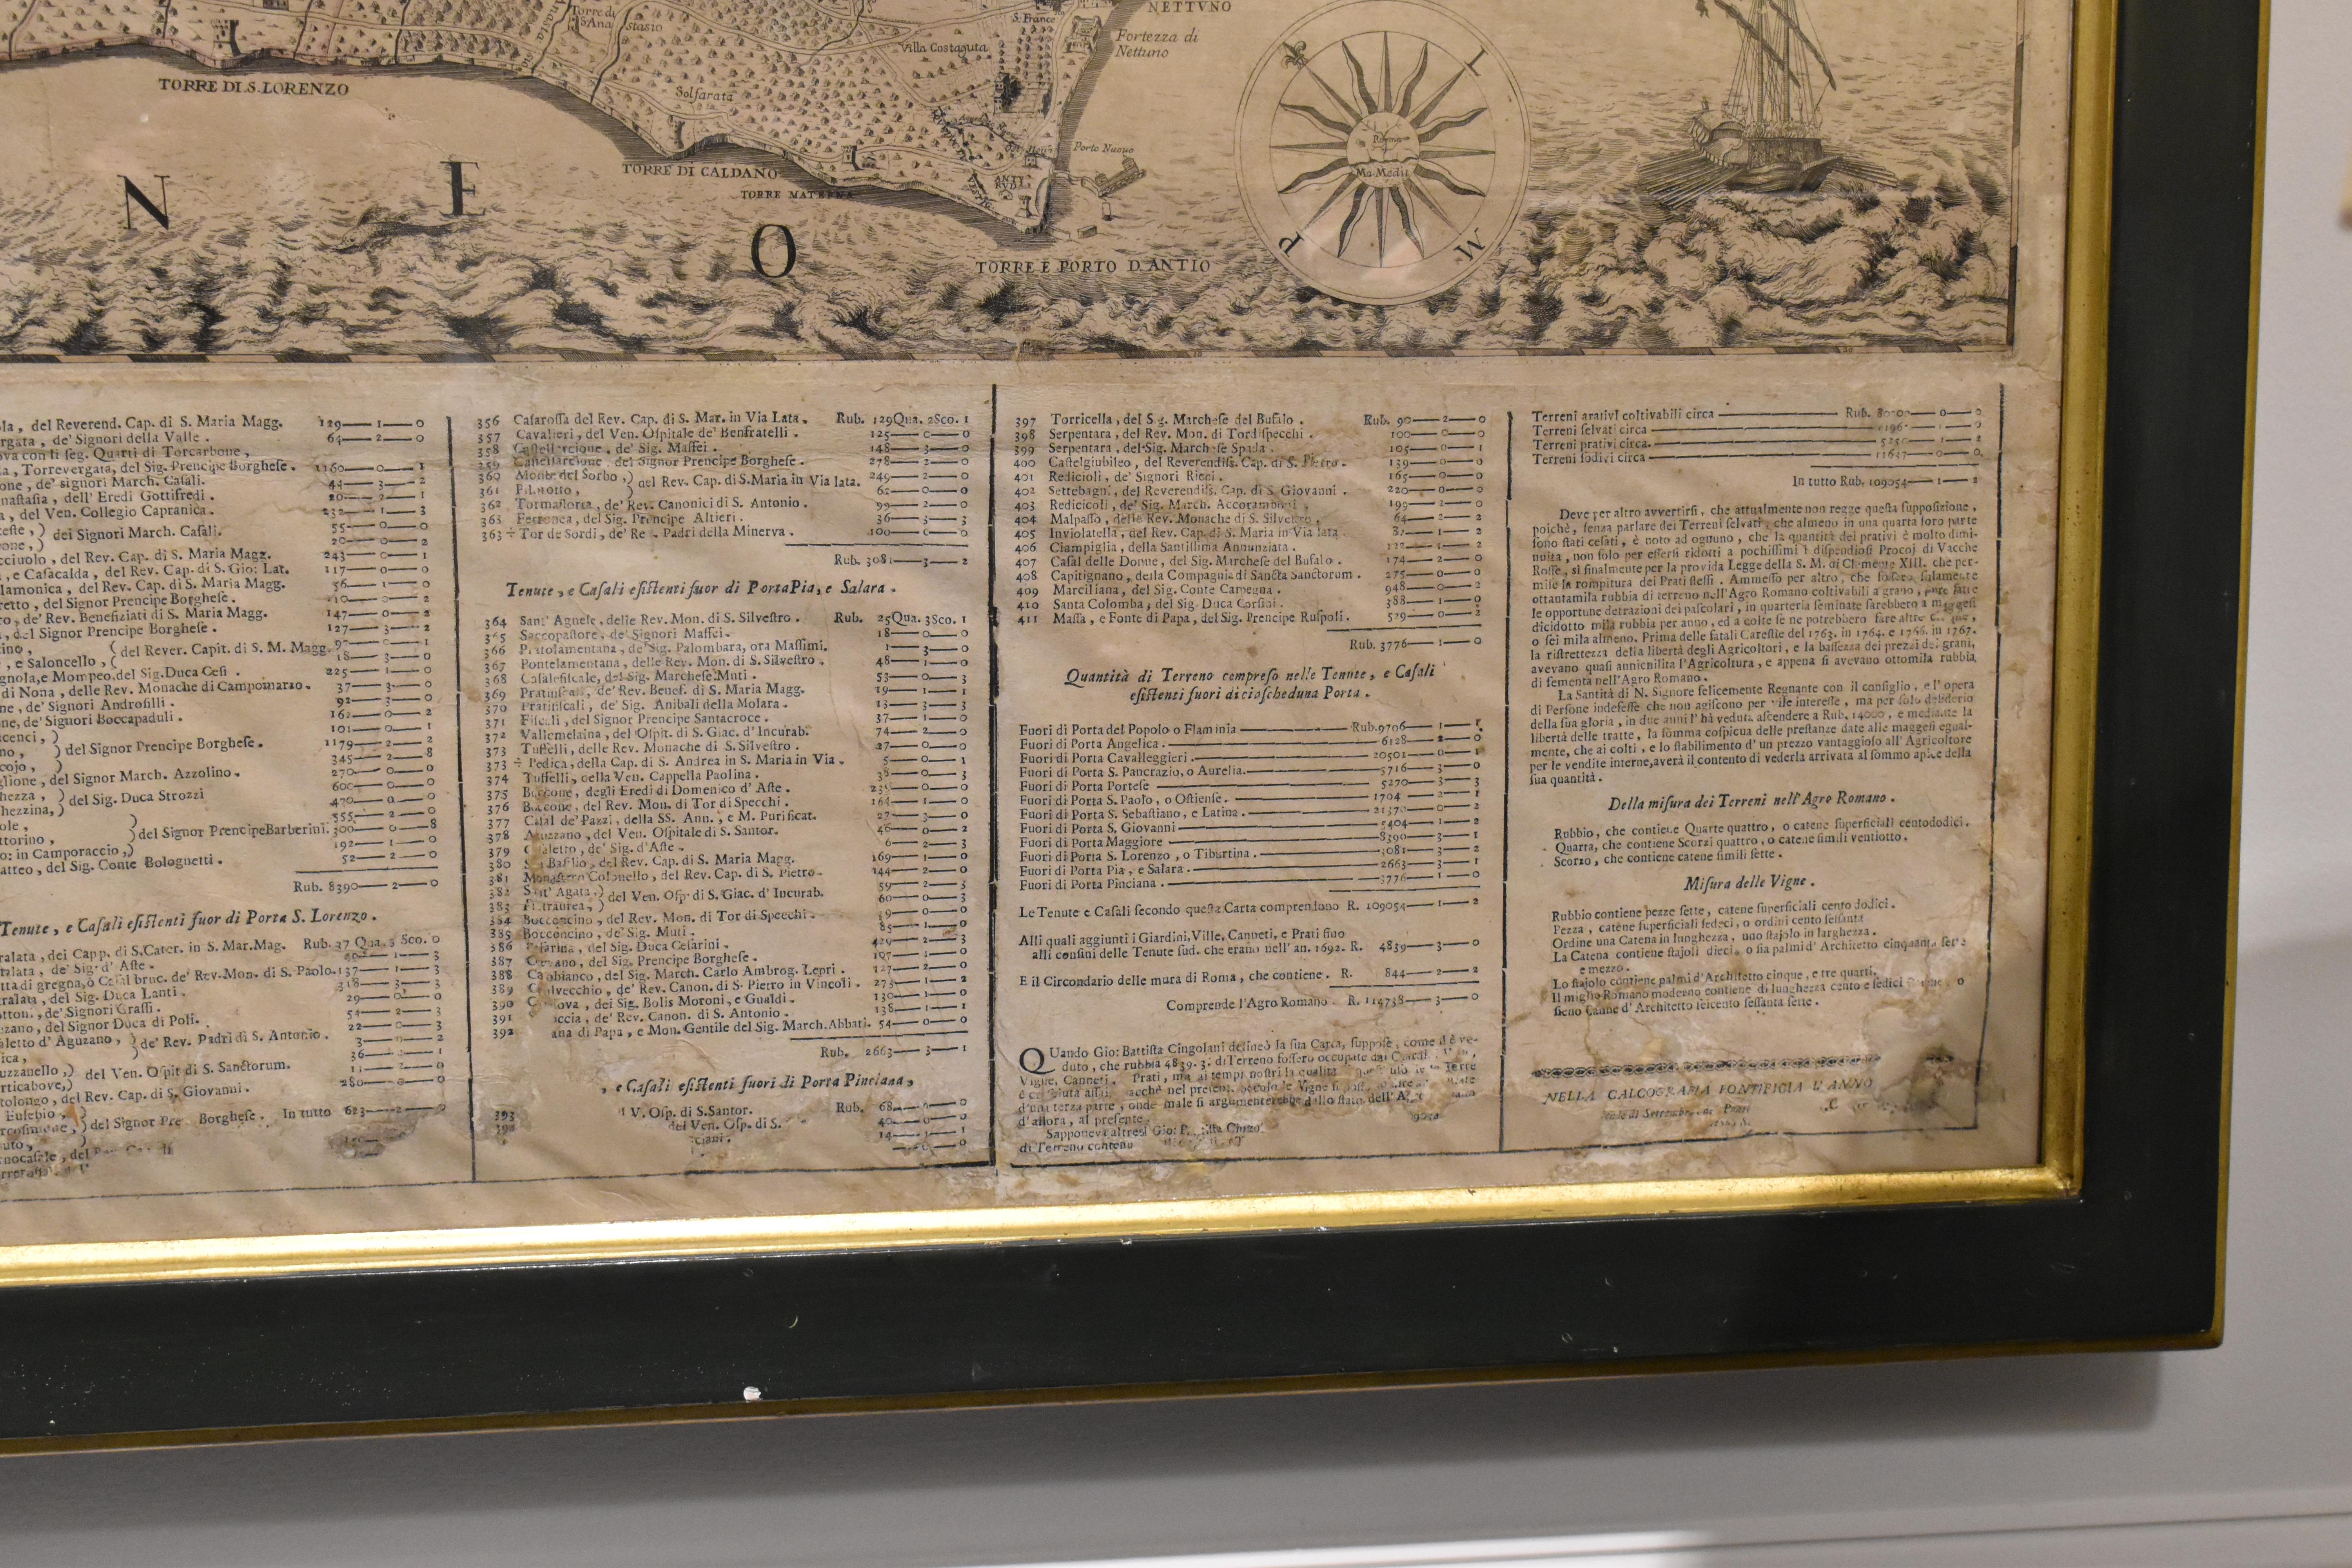 NETTVNO
Fortezza di
Nettuno
Torre di
S. Ana
stasio
S. Franco
Villa Costaguta
TORRE DI S. LORENZO
Solfarata
Porto Nuouo
TORRE DI CALDANO
TORRE MATERNA
N E O
TORRE E PORTO D'ANTIO
T
M
P
Roma
Ma. Medit
la, del Reverend. Cap. di S. Maria Magg. 129—1—0
rgata, de' Signori della Valle. 64—2—0
ova con li seg. Quarti di Torcarbone,
a, Torrevergata, del Sig. Prencipe Borghese. 1160—0—1
one, de' signori March. Casali. 44—3—2
nastasia, dell' Eredi Gottifredi. 20—2—1
a, del Ven. Collegio Capranica. 232—1—3
ceste, ) dei Signori March. Casali. 55—0—0
one, ) 20—0—2
cciuolo, del Rev. Cap. di S. Maria Magg. 243—0—1
, e Casacalda, del Rev. Cap. di S. Gio: Lat. 117—0—0
lamonica, del Rev. Cap. di S. Maria Magg. 56—1—0
retto, del Signor Prencipe Borghese.
ro, de' Rev. Benefiziati di S. Maria Magg. 147—0—2
, del Signor Prencipe Borghese. 127—3—2
ino, ( del Rever. Capit. di S. M. Magg.
, e Saloncello, ( 18—3—0
gnola, e Mompeo, del Sig. Duca Cesi. 225—1—0
di Nona, delle Rev. Monache di Campomarzo. 37—3—0
ne, de' Signori Androsilli. 92—3—0
one, de' Signori Boccapaduli. 162—0—2
cenci, ) 101—0—1
no, ) del Signor Prencipe Borghese. 1179—2—2
cojo, ) 345—2—8
glione, del Signor March. Azzolino. 270—0—0
hezza, ) del Sig. Duca Strozzi 600—0—0
ghezzina, ) 470—0—0
ole, ) 555—2—0
ttorino, ) del Signor Prencipe Barberini. 300—0—8
o: in Camporaccio, ) 192—1—0
atteo, del Sig. Conte Bolognetti. 52—2—0
Rub. 8390—2—0
Tenute, e Casali esistenti fuor di Porta S. Lorenzo.
ralata, dei Capp. di S. Cater. in S. Mar. Mag. Rub. 37 Qua. 3 Sco. 0
talata, de' Sig. d' Aste.
tta di gregna, ò Casal bruc. de' Rev. Mon. di S. Paolo. 137—1—3
ralata, del Sig. Duca Lanti. 318—3—3
ottoni, de' Signori Grassi. 29—0—0
zano, del Signor Duca di Poli. 54—2—3
aletto d' Aguzano, ) de' Rev. Padri di S. Antonio. 22—0—3
ica, ) 3—0—2
uzzanello, ) del Ven. Ospit di S. Sanctorum. 36—2—1
orticabove, )
tolongo, del Rev. Cap. di S. Giovanni. 280—0—0
Eusebio, )
) del Signor Pre Borghese. In tutto 623—2—0
uto, )
nocasale, del
356 Casarossa del Rev. Cap. di S. Mar. in Via Lata. Rub. 129 Qua. 2 Sco. 1
357 Cavalieri, del Ven. Ospitale de' Benfratelli. 125—0—0
358 Castellarcione, de' Sig. Maffei. 148—3—0
359 Castellarcione, del Signor Prencipe Borghese. 278—2—0
360 Monte del Sorbo, ) del Rev. Cap. di S. Maria in Via lata. 249—2—0
361 Pilarotto, ) 62—0—0
362 Tormastorta, de' Rev. Canonici di S. Antonio. 99—2—0
363 Ferronea, del Sig. Prencipe Altieri. 36—3—3
363 ÷ Tor de Sordi, de' Re . Padri della Minerva. 100—0—0
Rub. 3081—3—2
Tenute, e Casali esistenti fuor di Porta Pia, e Salara.
364 Sant' Agnese, delle Rev. Mon. di S. Silvestro. Rub. 25 Qua. 3 Sco. 1
365 Saccopastore, de' Signori Maffei. 18—0—0
366 Pratolamentana, de' Sig. Palombara, ora Massimi. 1—3—0
367 Pontelamentana, delle Rev. Mon. di S. Silvestro. 48—1—0
368 Casalefiscale, del Sig. Marchese Muti. 53—0—3
369 Pratifiscali, de' Rev. Benef. di S. Maria Magg. 19—1—1
370 Pratifiscali, de' Sig. Anibali della Molara. 13—3—3
371 Fiscali, del Signor Prencipe Santacroce. 37—1—0
372 Vallemelaina, del Ospit. di S. Giac. d' Incurab. 74—2—0
373 Tuffelli, delle Rev. Monache di S. Silvestro. 27—0—0
373 ÷ Pedica, della Cap. di S. Andrea in S. Maria in Via. 5—0—1
374 Tuffelli, della Ven. Cappella Paolina. 38—0—3
375 Boccone, degli Eredi di Domenico d' Aste. 235—0—0
376 Boccone, del Rev. Mon. di Tor di Specchi. 164—1—0
377 Casal de' Pazzi, della SS. Ann., e M. Purificat. 27—3—0
378 Aguzzano, del Ven. Ospitale di S. Santor. 46—0—2
379 Casaletto, de' Sig. d' Aste. 6—2—3
380 San Basilio, del Rev. Cap. di S. Maria Magg. 169—1—0
381 Monastero Colonello, del Rev. Cap. di S. Pietro. 144—2—0
382 Sant' Agata, ) del Ven. Osp. di S. Giac. d' Incurab. 59—2—3
383 Pietraurea, ) 60—0—3
384 Bocconcino, del Rev. Mon. di Tor di Specchi. 39—0—0
385 Bocconcino, de' Sig. Muti. 85—1—0
386 Cesarina, del Sig. Duca Cesarini. 429—2—3
387 del Sig. Prencipe Borghese. 107—1—0
388 Capobianco, del Sig. March. Carlo Ambrog. Lepri. 127—2—0
389 Casalvecchio, de' Rev. Canon. di S. Pietro in Vincoli. 273—1—2
390 ova, dei Sig. Bolis Moroni, e Gualdi. 130—1—0
391 occia, de' Rev. Canon. di S. Antonio. 138—1—1
392 ana di Papa, e Mon. Gentile del Sig. March. Abbati. 54—0—0
Rub. 2663—3—1
, e Casali esistenti fuori di Porta Pinciana,
393 V. Osp. di S. Santor. Rub. 68—0—0
394 dei Ven. Osp. di S. 40—0—0
14—1—1
397 Torricella, del Sig. Marchese del Bufalo. Rub. 90—2—0
398 Serpentara, del Rev. Mon. di Tordispecchi. 100—0—0
399 Serpentara, del Sig. Marchese Spada. 105—0—1
400 Castelgiubileo, del Reverendiss. Cap. di S. Pietro. 139—0—0
401 Redicioli, de' Signori Ricci. 165—0—0
402 Settebagni, del Reverendiss. Cap. di S. Giovanni. 220—0—0
403 Redicicoli, de' Sig. March. Accoramboni. 199—2—0
404 Malpasso, delle Rev. Monache di S. Silvestro, 64—2—2
405 Inviolatella, del Rev. Cap. di S. Maria in Via lata. 87—1—2
406 Ciampiglia, della Santissima Annunziata.
407 Casal delle Donne, del Sig. Marchese del Bufalo. 174—2—0
408 Capitignano, della Compagnia di Sancta Sanctorum. 275—0—0
409 Marciliana, del Sig. Conte Carpegna. 948—0—2
410 Santa Colomba, del Sig. Duca Corsini. 388—1—0
411 Massa, e Fonte di Papa, del Sig. Prencipe Ruspoli. 529—0—2
Rub. 3776—1—0
Quantità di Terreno compreso nelle Tenute, e Casali
esistenti fuori di ciascheduna Porta.
Fuori di Porta del Popolo o Flaminia — Rub. 9706—1—1
Fuori di Porta Angelica. — 6128—2—0
Fuori di Porta Cavalleggieri. — 20501—0—1
Fuori di Porta S. Pancrazio, o Aurelia. — 5716—3—0
Fuori di Porta Portese — 5270—3—3
Fuori di Porta S. Paolo, o Ostiense. — 1704—2—1
Fuori di Porta S. Sebastiano, e Latina. — 21370—0—2
Fuori di Porta S. Giovanni — 5404—1—2
Fuori di Porta Maggiore — 8390—3—1
Fuori di Porta S. Lorenzo, o Tiburtina. — 3081—3—2
Fuori di Porta Pia, e Salara. — 2663—3—1
Fuori di Porta Pinciana. — 3776—1—0
Le Tenute e Casali secondo questa Carta comprendono R. 109054—1—2
Alli quali aggiunti i Giardini, Ville, Canneti, e Prati fino
alli confini delle Tenute sud. che erano nell' an. 1692. R. 4839—3—0
E il Circondario delle mura di Roma, che contiene. R. 844—2—2
Comprende l'Agro Romano. R. 114738—3—0
QUando Gio: Battista Cingolani delineò la sua Carta, suppose, come si è ve-
duto, che rubbia 4839. 3. di Terreno fossero occupate dai
Vigne, Canneti, Prati, ma ai tempi nostri la qualità
è cresciuta assai, acchè nel presente secolo le Vigne si
d'una terza parte, onde male si argumenterebbe dallo stato dell'
d'allora, al presente.
Supponeva altresì Gio:
di Terreno contenu
Terreni arativi coltivabili circa — Rub. 80000—0—0
Terreni selvati circa —
Terreni prativi circa. — 5250—1—2
Terreni sodivi circa — 11637—0—0
In tutto Rub. 109054—1—2
Deve per altro avvertirsi, che attualmente non regge questa supposizione,
poichè, senza parlare dei Terreni selvati, che almeno in una quarta loro parte
sono stati cesati, è noto ad ognuno, che la quantità dei prativi è molto dimi-
nuita, non solo per essersi ridotti a pochissimi i dispendiosi Procoj di Vacche
Rosse, sì finalmente per la provida Legge della S. M. di Clemente XIII. che per-
mise la rompitura dei Prati stessi. Ammesso per altro, che fossero solamente
ottantamila rubbia di terreno nell'Agro Romano coltivabili a grano, pure fatte
le opportune detrazioni dei pascolari, in quarteria seminate sarebbero a maggesi
diciotto mila rubbia per anno, ed a colte se ne potrebbero fare altre cinque,
o sei mila almeno. Prima delle fatali Carestie del 1763. in 1764. e 1766. in 1767.
la ristrettezza della libertà degli Agricoltori, e la bassezza dei prezzi dei grani,
avevano quasi annichilita l'Agricoltura, e appena si avevano ottomila rubbia
di sementa nell'Agro Romano.
La Santità di N. Signore felicemente Regnante con il consiglio, e l'opera
di Persone indefesse che non agiscono per vile interesse, ma per solo desiderio
della sua gloria, in due anni l'hà veduta ascendere a Rub. 14000, e mediante la
libertà delle tratte, la somma cospicua delle prestanze date alle maggesi egual-
mente, che ai colti, e lo stabilimento d'un prezzo vantaggioso all'Agricoltore
per le vendite interne, averà il contento di vederla arrivata al sommo apice della
sua quantità.
Della misura dei Terreni nell'Agro Romano.
Rubbio, che contiene Quarte quattro, o catene superficiali centododici.
Quarta, che contiene Scorzi quattro, o catene simili ventiotto.
Scorzo, che contiene catene simili sette.
Misura delle Vigne.
Rubbio contiene pezze sette, catene superficiali cento dodici.
Pezza, catene superficiali sedeci, o ordini cento sessanta
Ordine una Catena in lunghezza, uno stajolo in larghezza.
La Catena contiene stajoli dieci, o sia palmi d' Architetto cinquanta sette
e mezzo.
Lo stajolo contiene palmi d'Architetto cinque, e tre quarti.
Il miglio Romano moderno contiene di lunghezza cento e sedici Catene, o
sieno Canne d' Architetto seicento sessanta sette.
NELLA CALCOGRAFIA PONTIFICIA L'ANNO